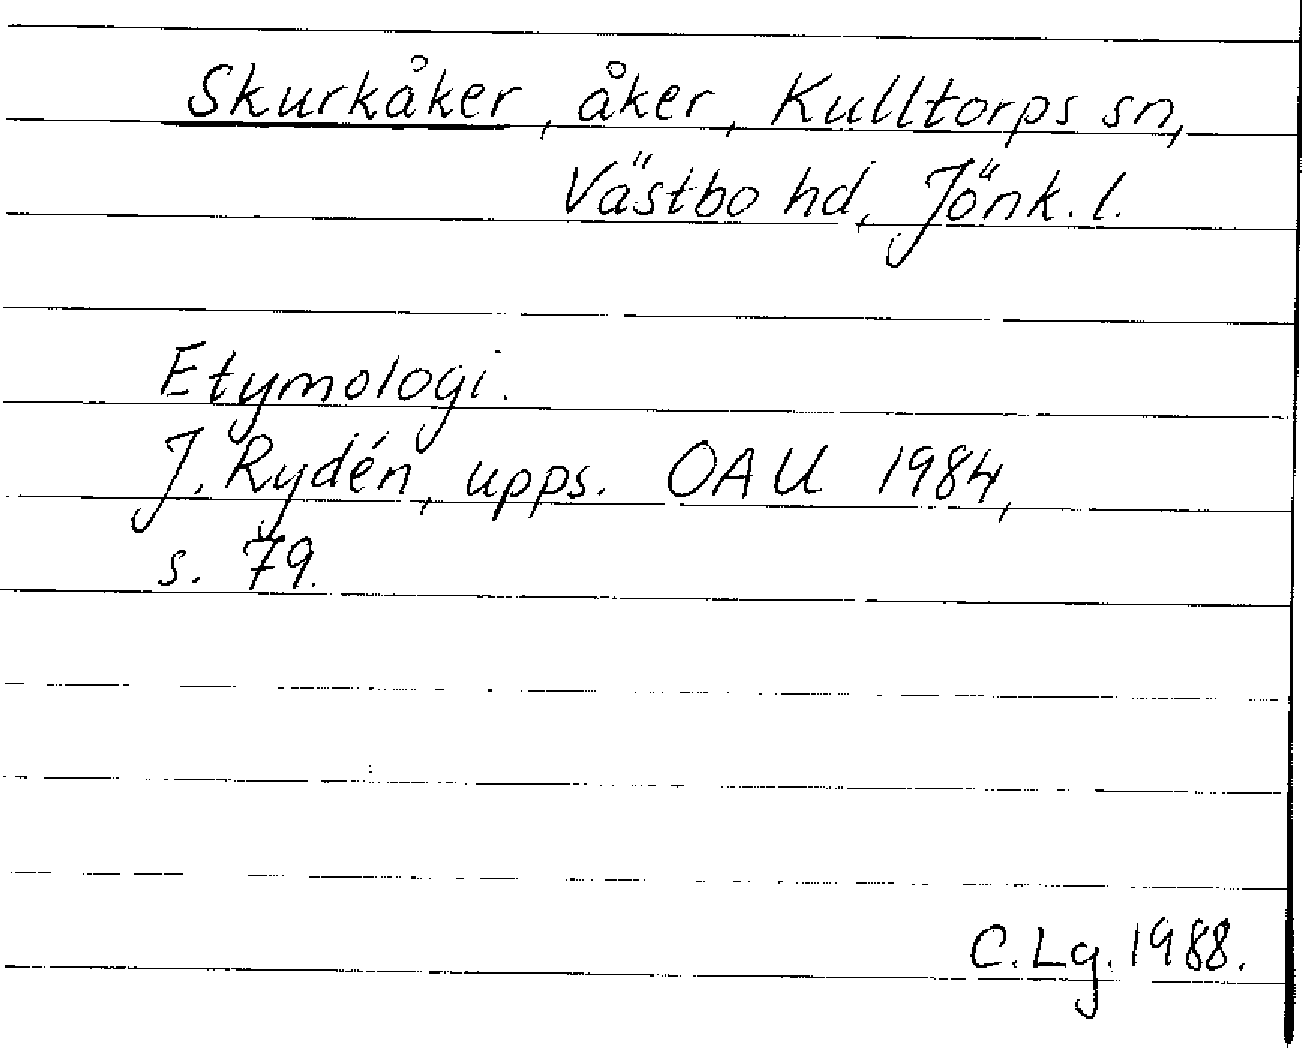 Skurkåker, åker, Kulltorps sn,
Västbo hd, Jönk. l.
Etymologi.
J. Rydén, upps. OAU 1984,
s. 79.
C. Lg. 1988.